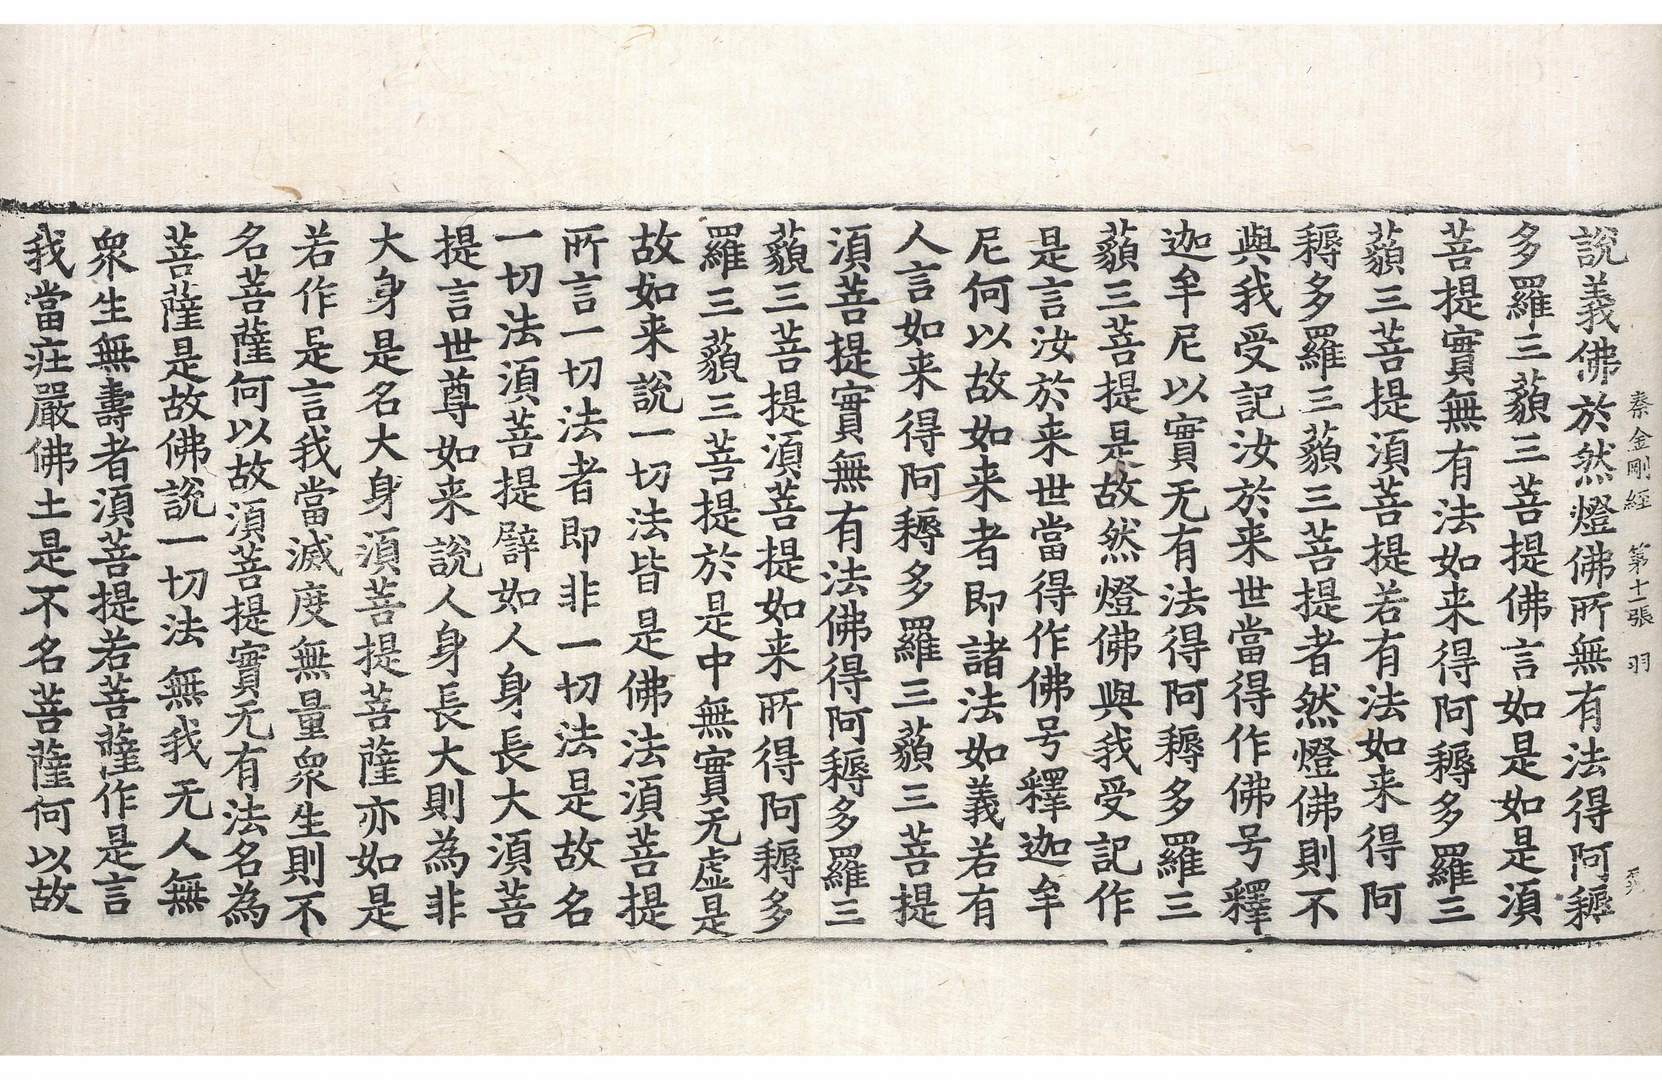 秦金剛經 第十張 羽
說義佛於然燈佛所無有法得阿耨
多羅三藐三菩提佛言如是如是湏
菩提實無有法如来得阿耨多羅三
藐三菩提湏菩提若有法如来得阿
耨多羅三藐三菩提者然燈佛則不
與我受記汝於来世當得作佛号釋
迦牟尼以實无有法得阿耨多羅三
藐三菩提是故然燈佛與我受記作
是言汝於来世當得作佛号釋迦牟
尼何以故如来者即諸法如義若有
人言如来得阿耨多羅三藐三菩提
湏菩提實無有法佛得阿耨多羅三
藐三菩提湏菩提如来所得阿耨多
羅三藐三菩提於是中無實无虛是
故如来說一切法皆是佛法湏菩提
所言一切法者即非一切法是故名
一切法湏菩提譬如人身長大湏菩
提言世尊如来說人身長大則為非
大身是名大身湏菩提菩薩亦如是
若作是言我當滅度無量衆生則不
名菩薩何以故湏菩提實无有法名為
菩薩是故佛說一切法無我无人無
衆生無壽者湏菩提若菩薩作是言
我當莊嚴佛土是不名菩薩何以故